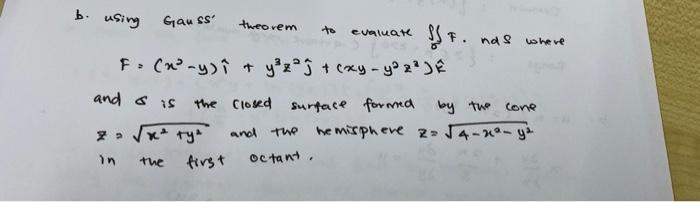 b. using Gauss' theorem to evaluate ∬_σ F. nds where
F = (x² - y) î + y³z² ĵ + (xy - y²z³) k̂
and σ is the closed surface formed by the cone
z = √x² + y² and the hemisphere z = √4 - x² - y²
in the first octant.